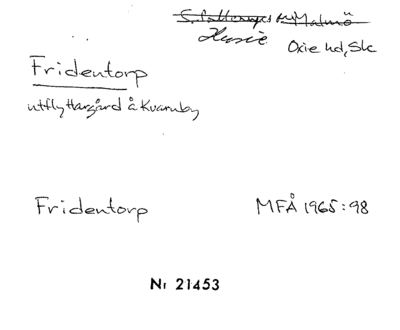 S. Sallerups sn, Malmö
Husie
Oxie hd, Sk
Fridentorp
utflyttargård å Kvarnby
Fridentorp MFÅ 1965:98
Nr 21453